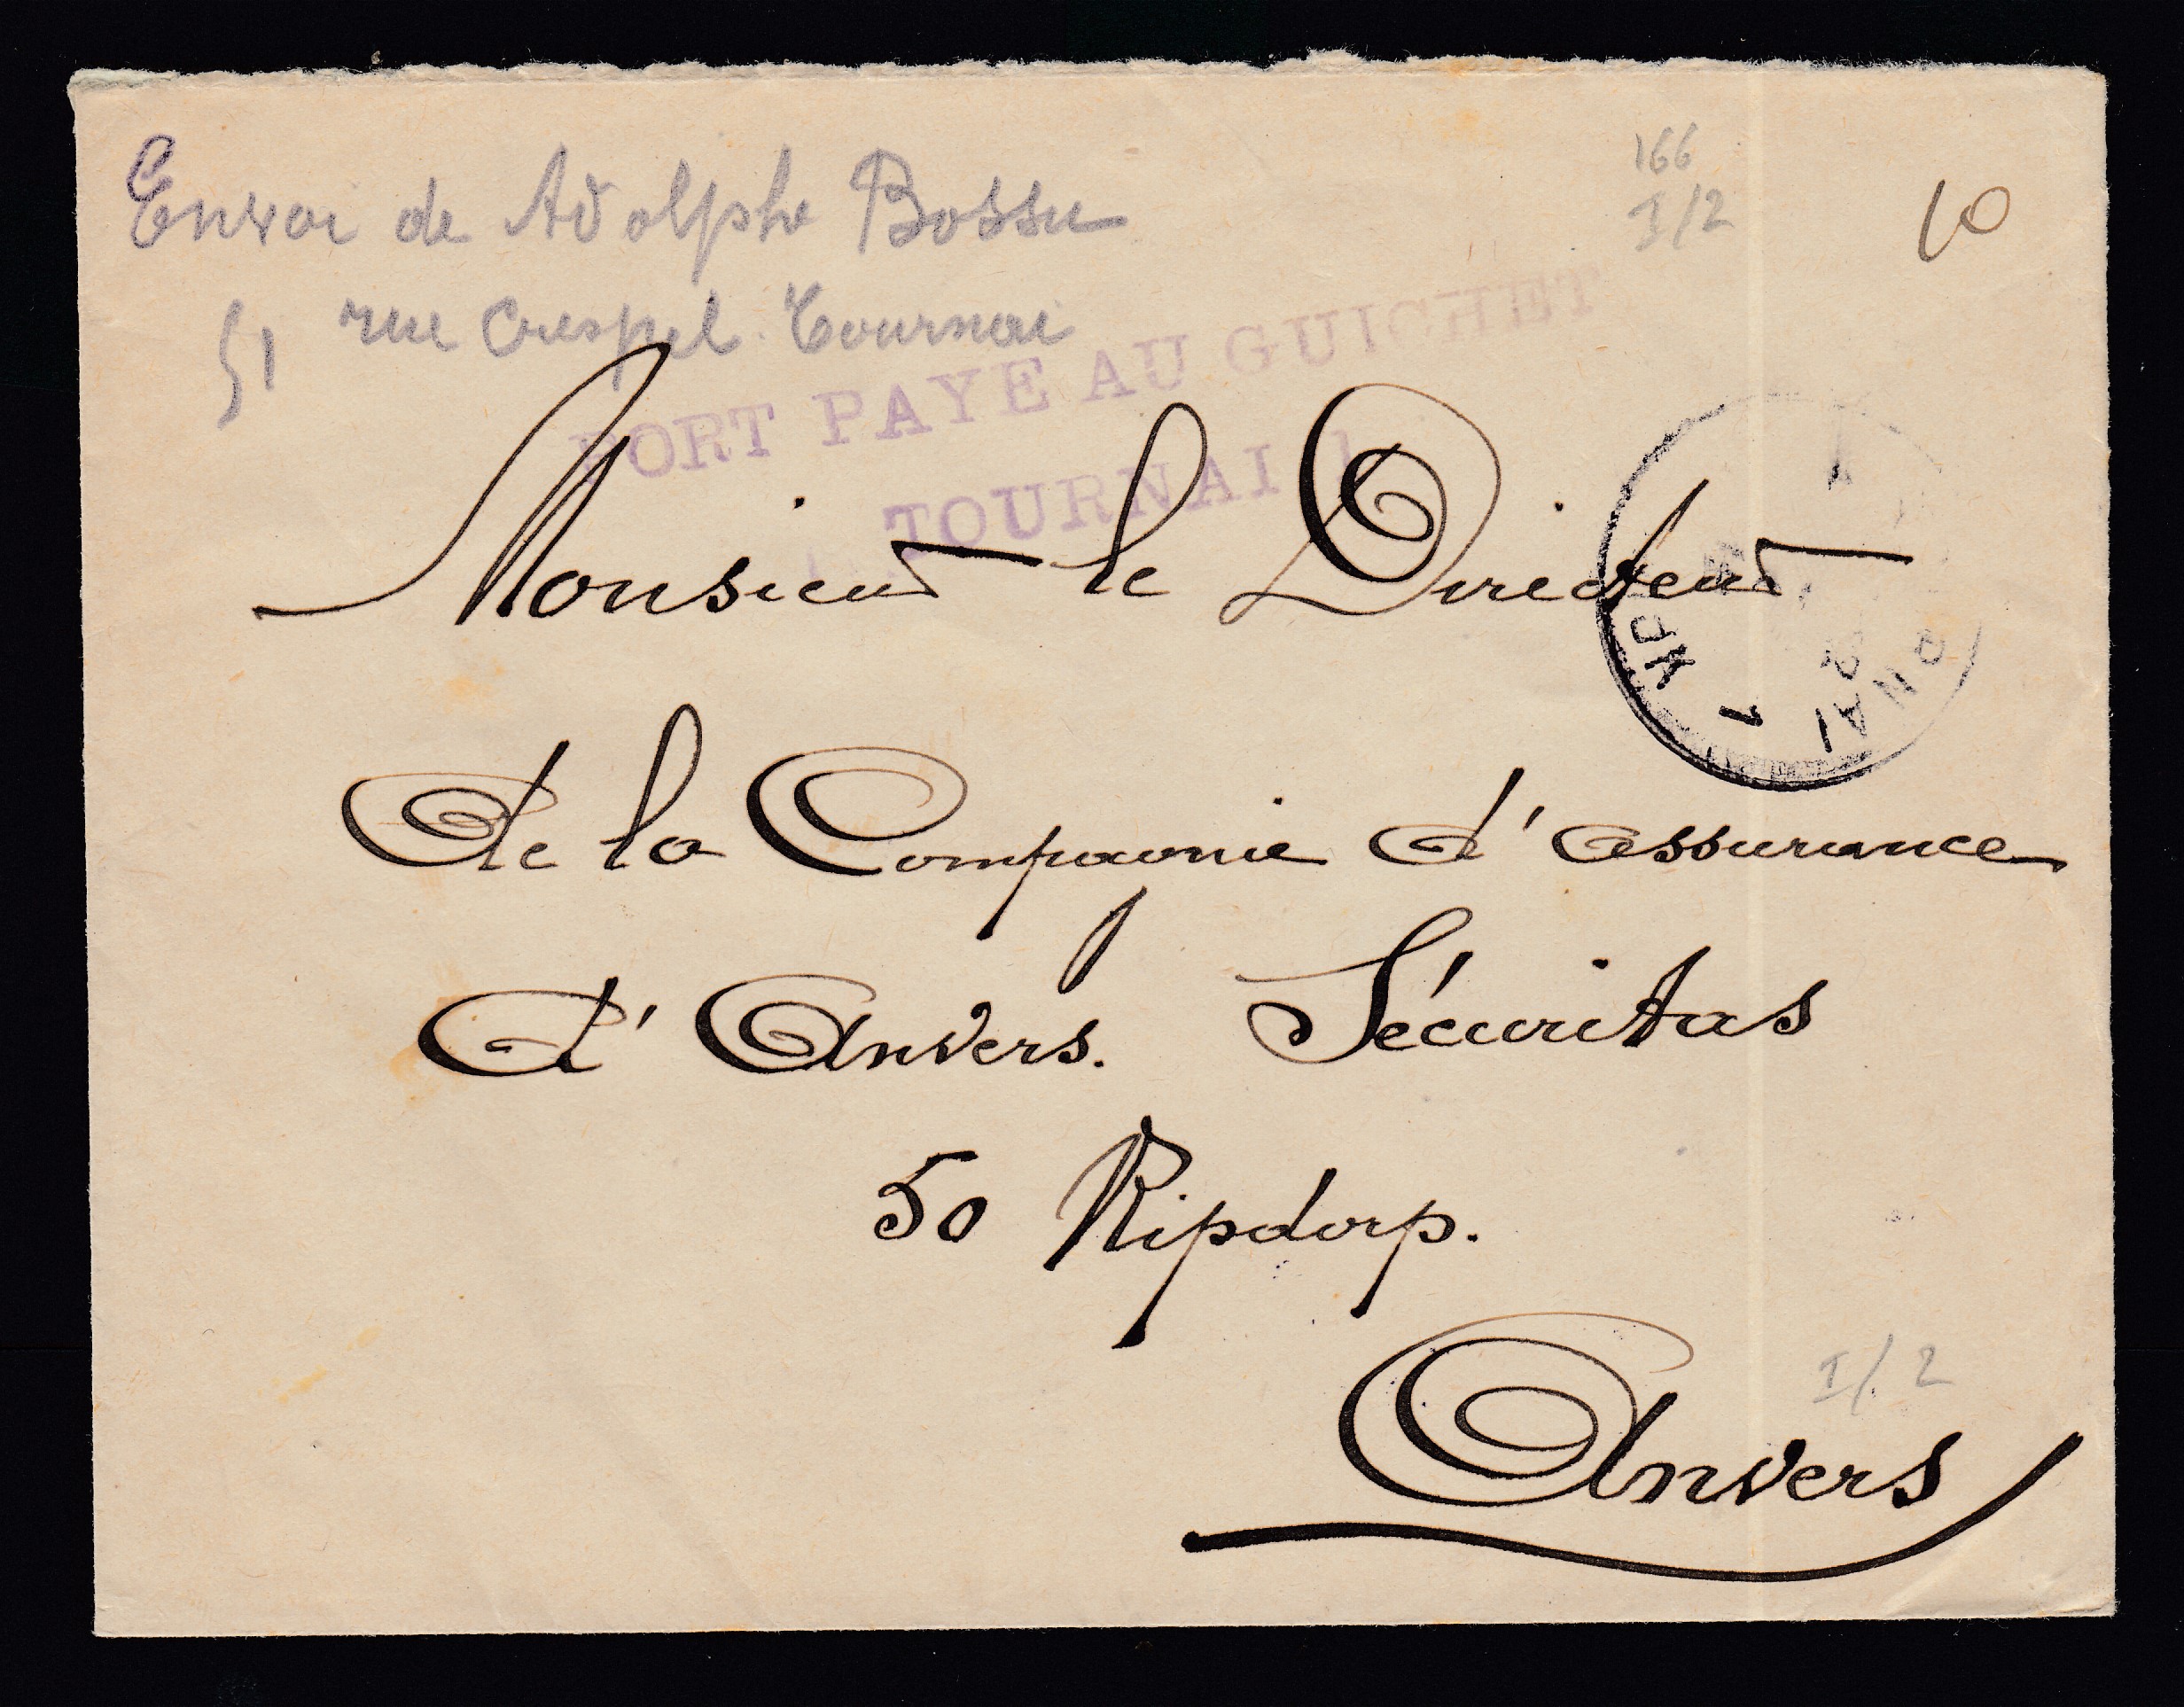 Envoi de Adolphe Bossu
51 rue Crespel Tournai
166
I/2
10
PORT PAYE AU GUICHET
TOURNAI 1
Monsieur le Directeur
de la Compagnie d'assurance
d'Anvers. Sécuritas
50 Kipdorp.
I/2
Anvers